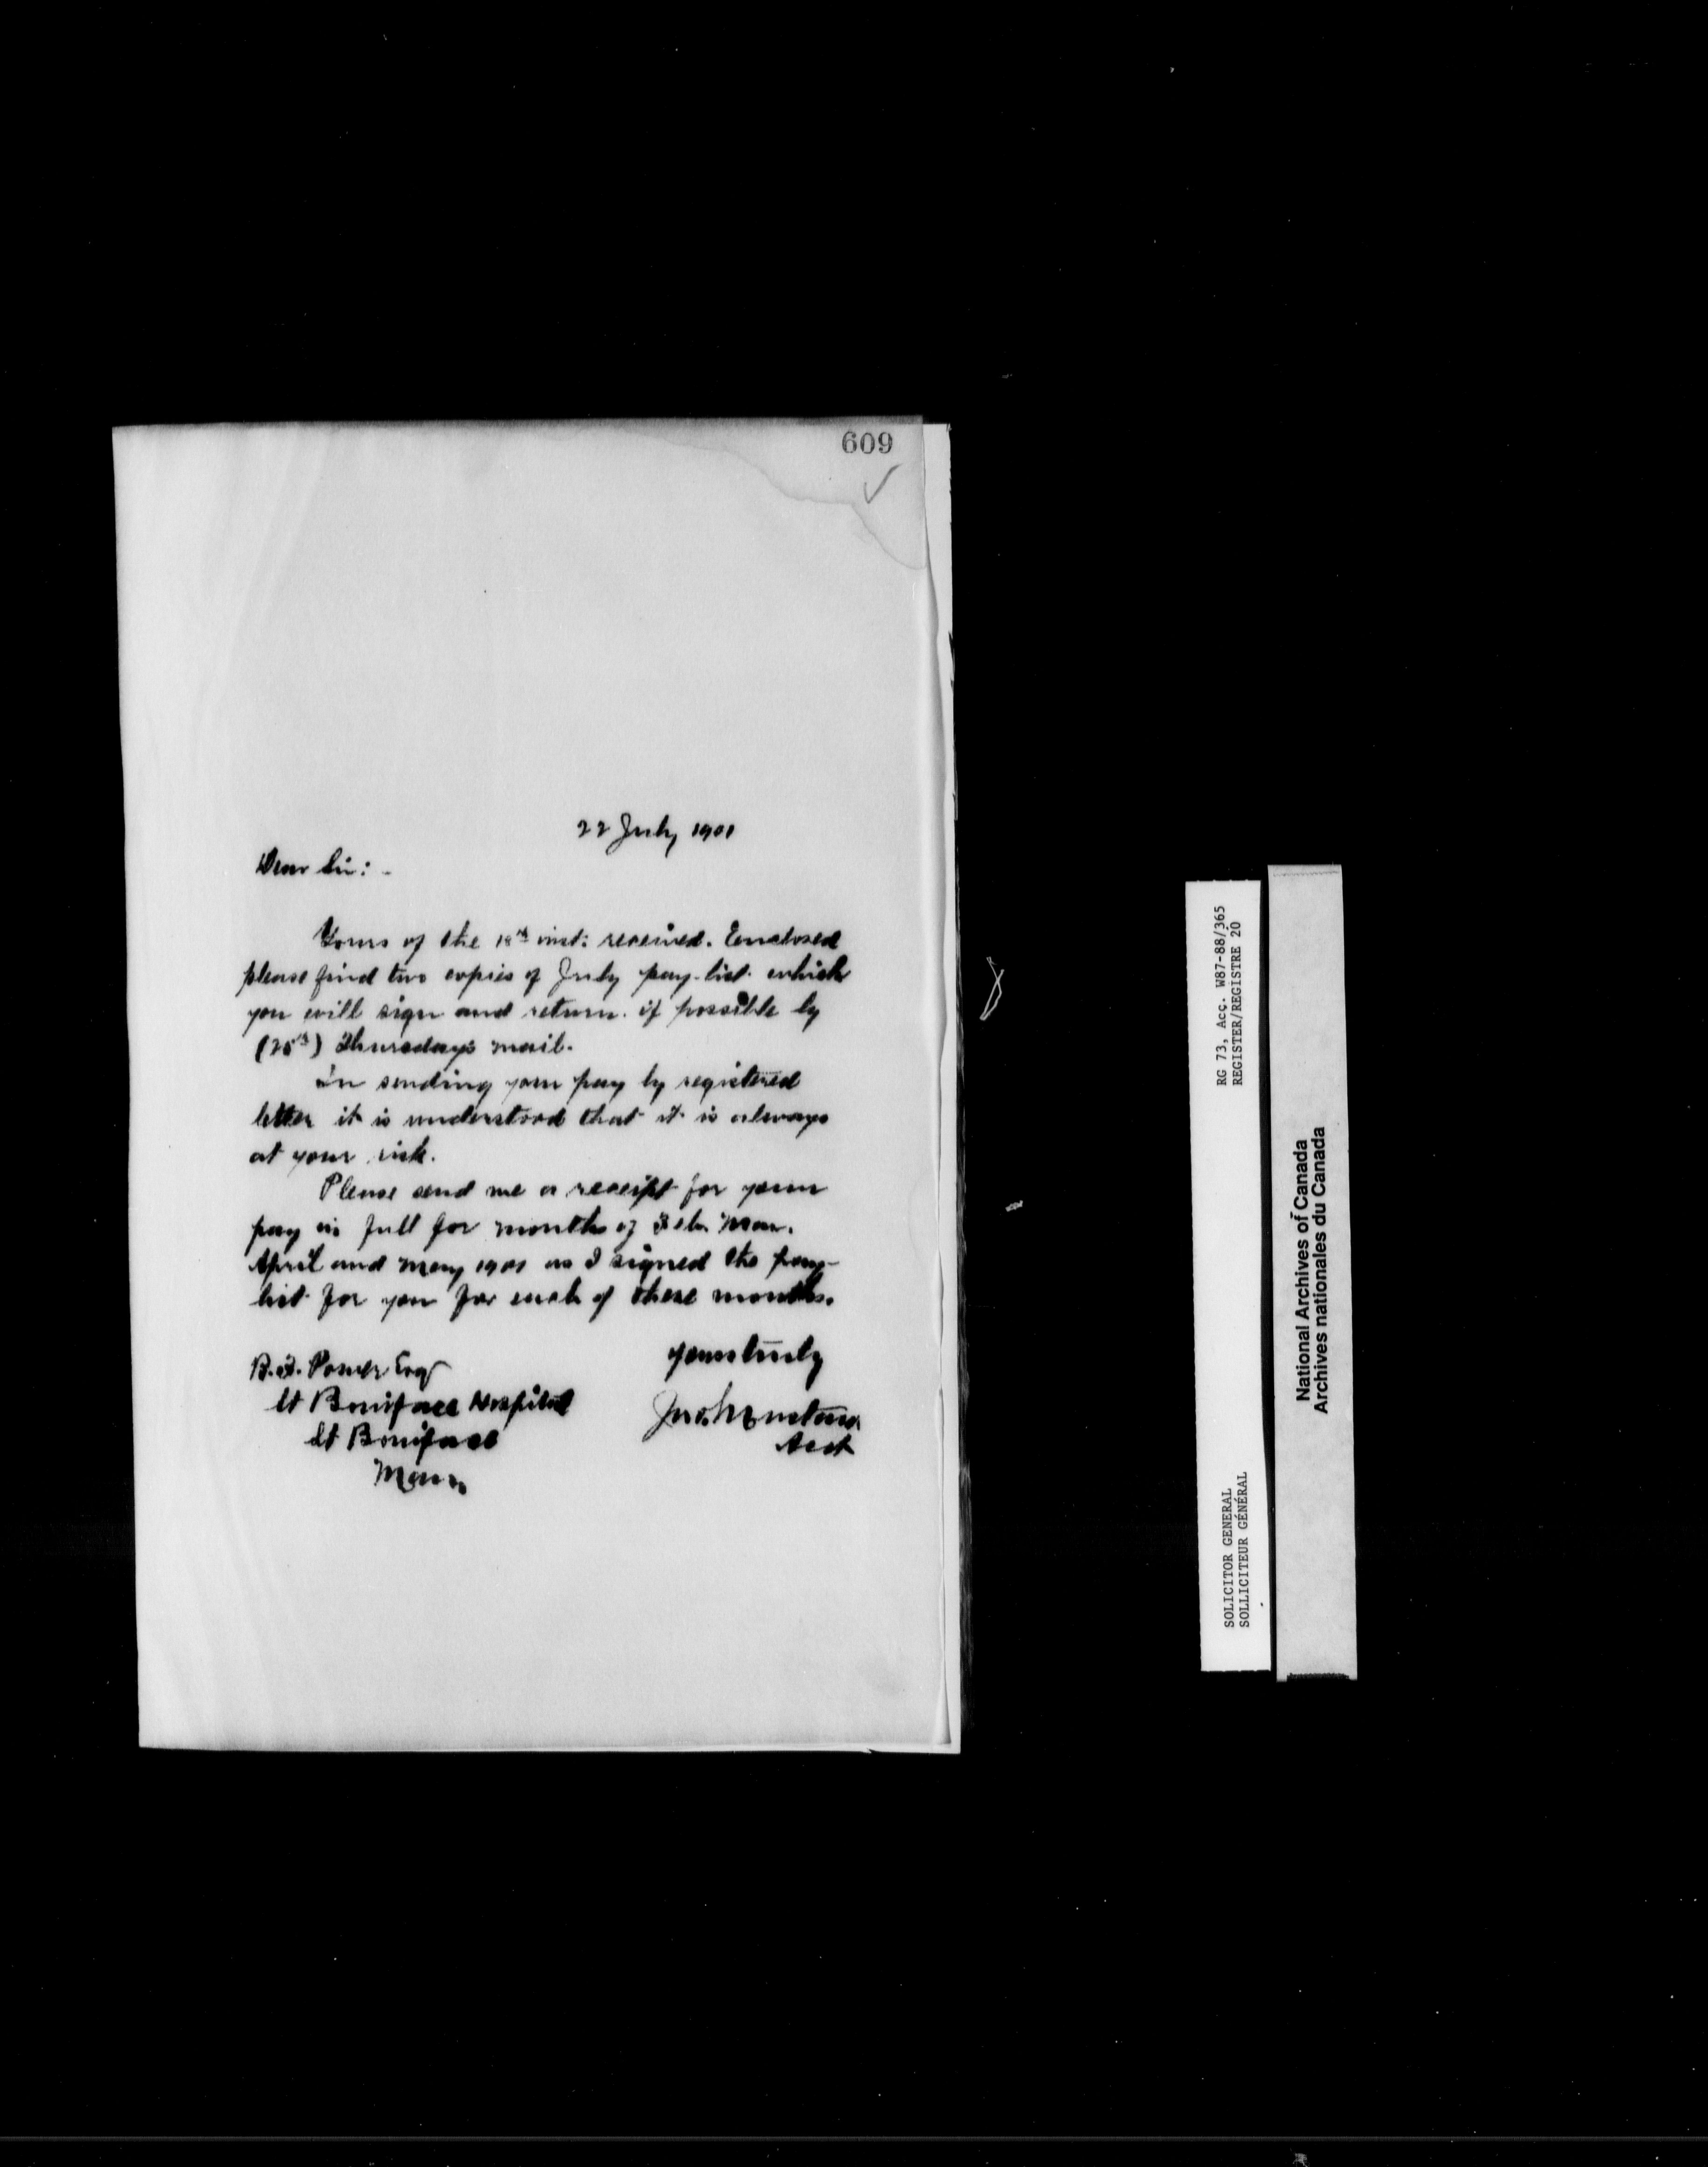 609
22 July 1901
Dear Sir: -
Yours of the 18th inst: received. Enclosed
please find two copies of July pay-list which
you will sign and return if possible by
(25th) Thursday's mail.
In sending your pay by registered
letter it is understood that it is always
at your risk.
Please send me a receipt for your
pay in full for months of Feb. Mar.
April and May 1901 as I signed the pay-
list for you for each of these months.
Yours truly
B. Power Esq
St Boniface Hospital
St Boniface
Man.
Jno.
Acct
RG 73, Acc. W87-88/365
REGISTER/REGISTRE 20
SOLICITOR GENERAL
SOLLICITEUR GÉNÉRAL
National Archives of Canada
Archives nationales du Canada